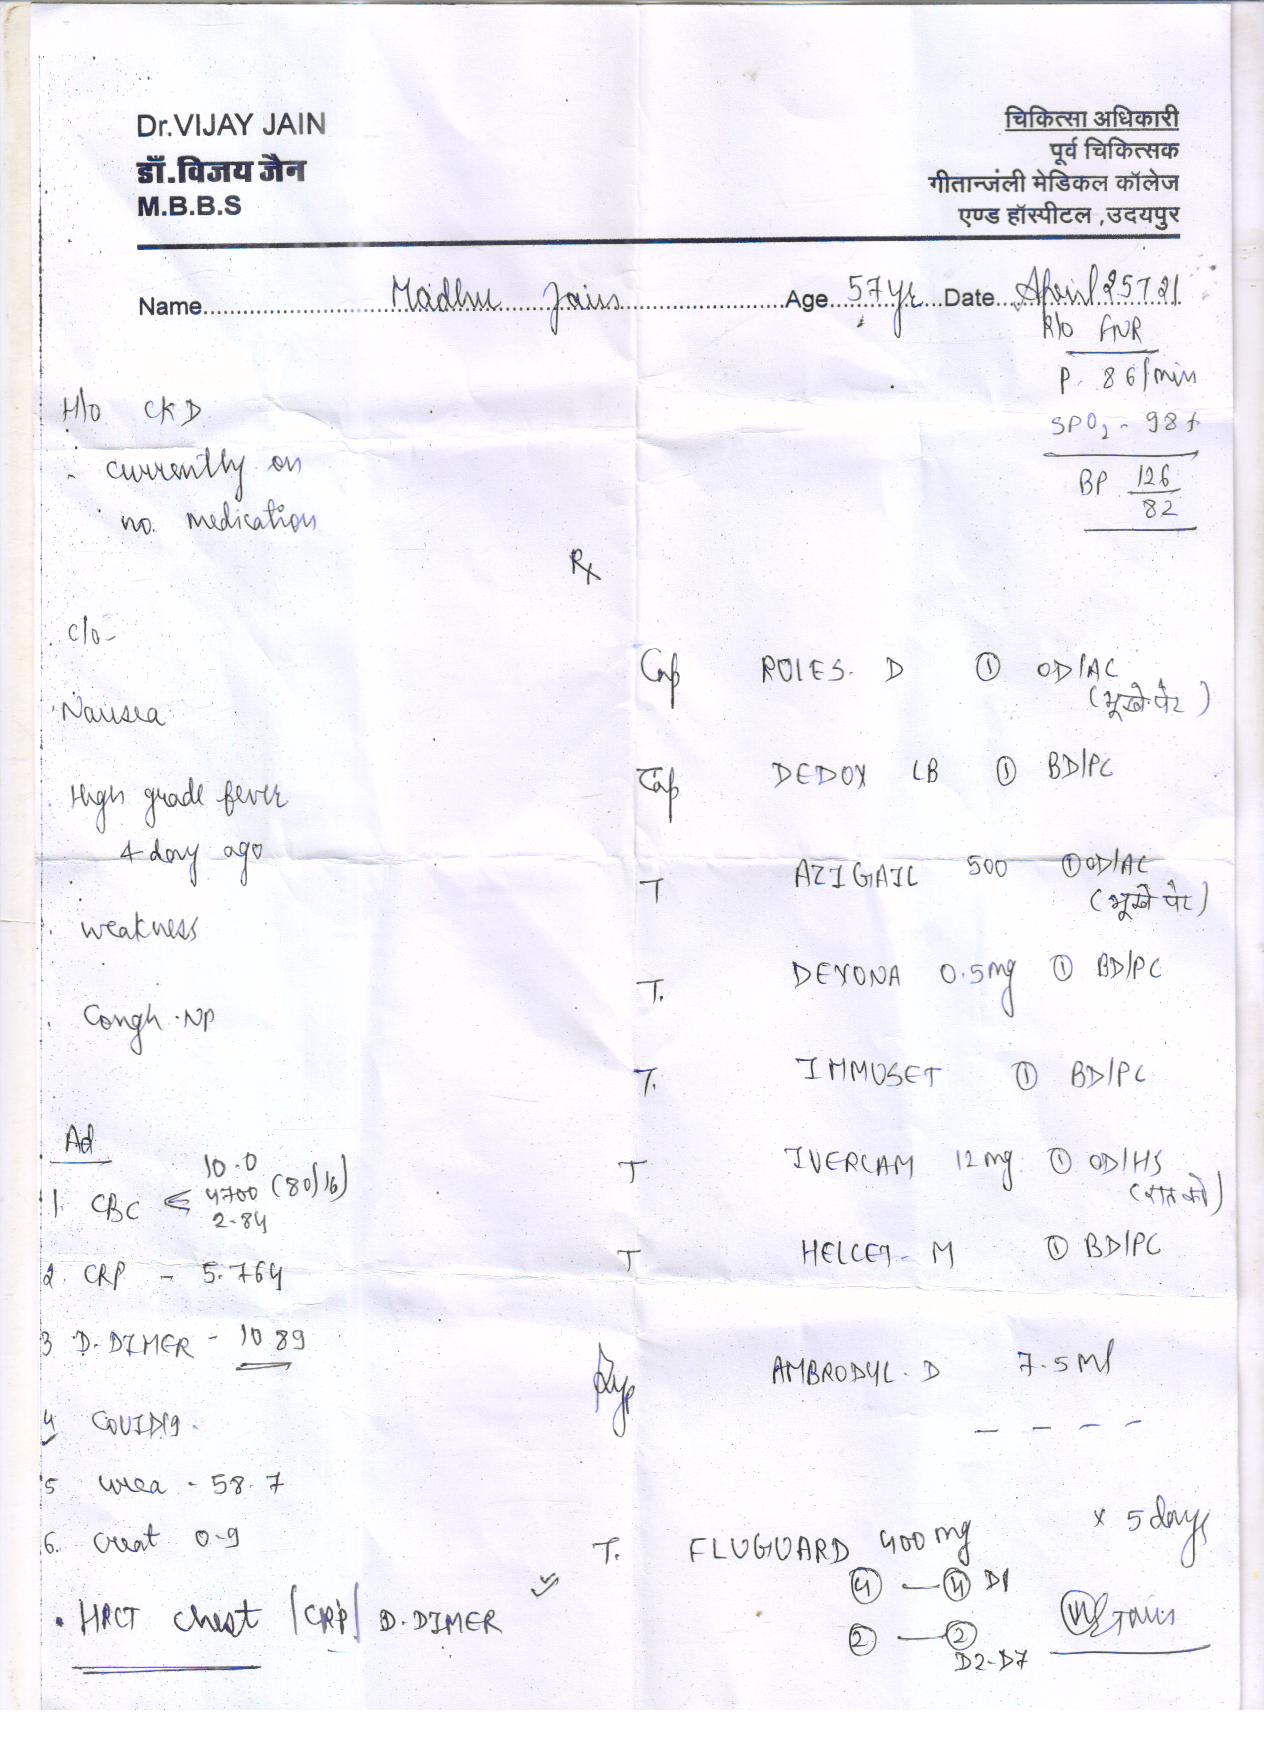 Dr.VIJAY JAIN
डॉ.विजय जैन
M.B.B.S
चिकित्सा अधिकारी
पूर्व चिकित्सक
गीतान्जंली मेडिकल कॉलेज
एण्ड हॉस्पीटल ,उदयपुर
Name Madhu Jain Age 57yr Date April 25 T 21
R/o FNR
P. 86/min
SPO2 - 98%
BP 126
82
H/o CKD
- currently on
no. medication
Rx
c/o-
Nausea
High grade fever
4 day ago
weakness
Cough .NP
Ad
10.0
1. CBC 4700 (80/16)
2.84
2. CRP - 5.764
3 D-DIMER - 1089
4 COVID19.
5 urea - 58.7
6. Creat 0.9
. HRCT chest /CRP/ D.DIMER
Cap ROLES. D ① OD/AC
(भूखे पेट)
Cap DEDOX LB ① BD/PC
T AZIGAIL 500 ① OD/AC
(भूखे पेट)
T. DEXONA 0.5mg ① BD/PC
T. IMMUSET ① BD/PC
T IVERCAM 12mg ① OD/HS
(रात को)
T HELCET- M ① BD/PC
Syp AMBRODYL. D 7.5 Ml
- - - -
x 5 days
T. FLUGUARD 400 mg
④ — ④ D1
② — ②
D2-D7